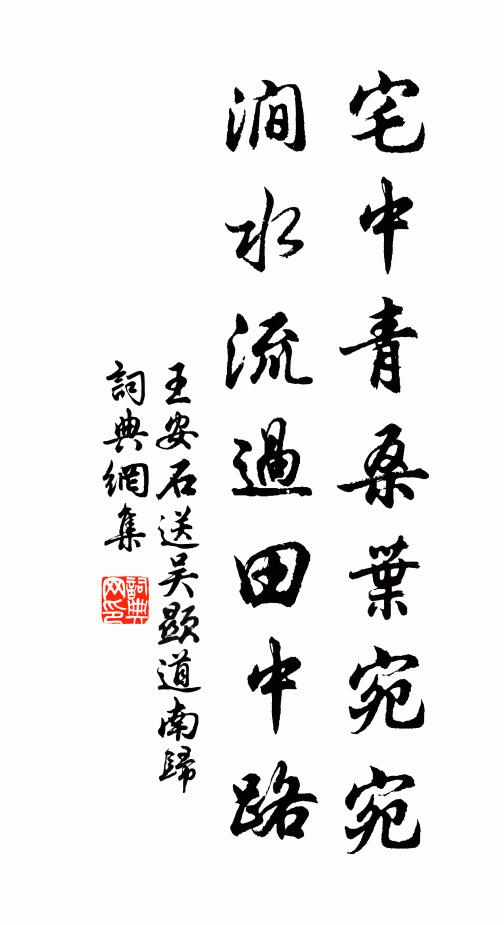 宅中青桑葉宛宛
澗水流過田中路
王安石送吴顯道南歸
詞典網集
詞典網印